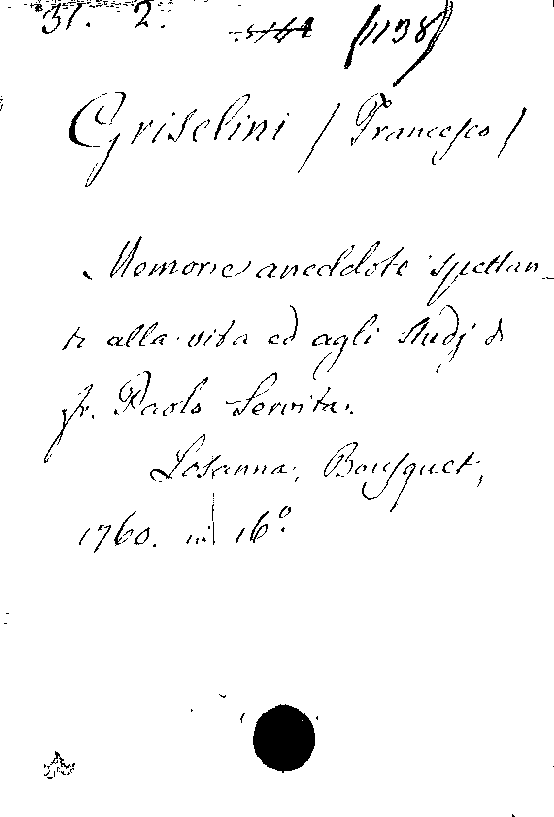 31. 2. (1138)
Griselini (Francesco)
Memorie aneddote spettan-
ti alla vita ed agli studj di
fr. Paolo Servita.
Losanna, Bousquet,
1760. in 16º.